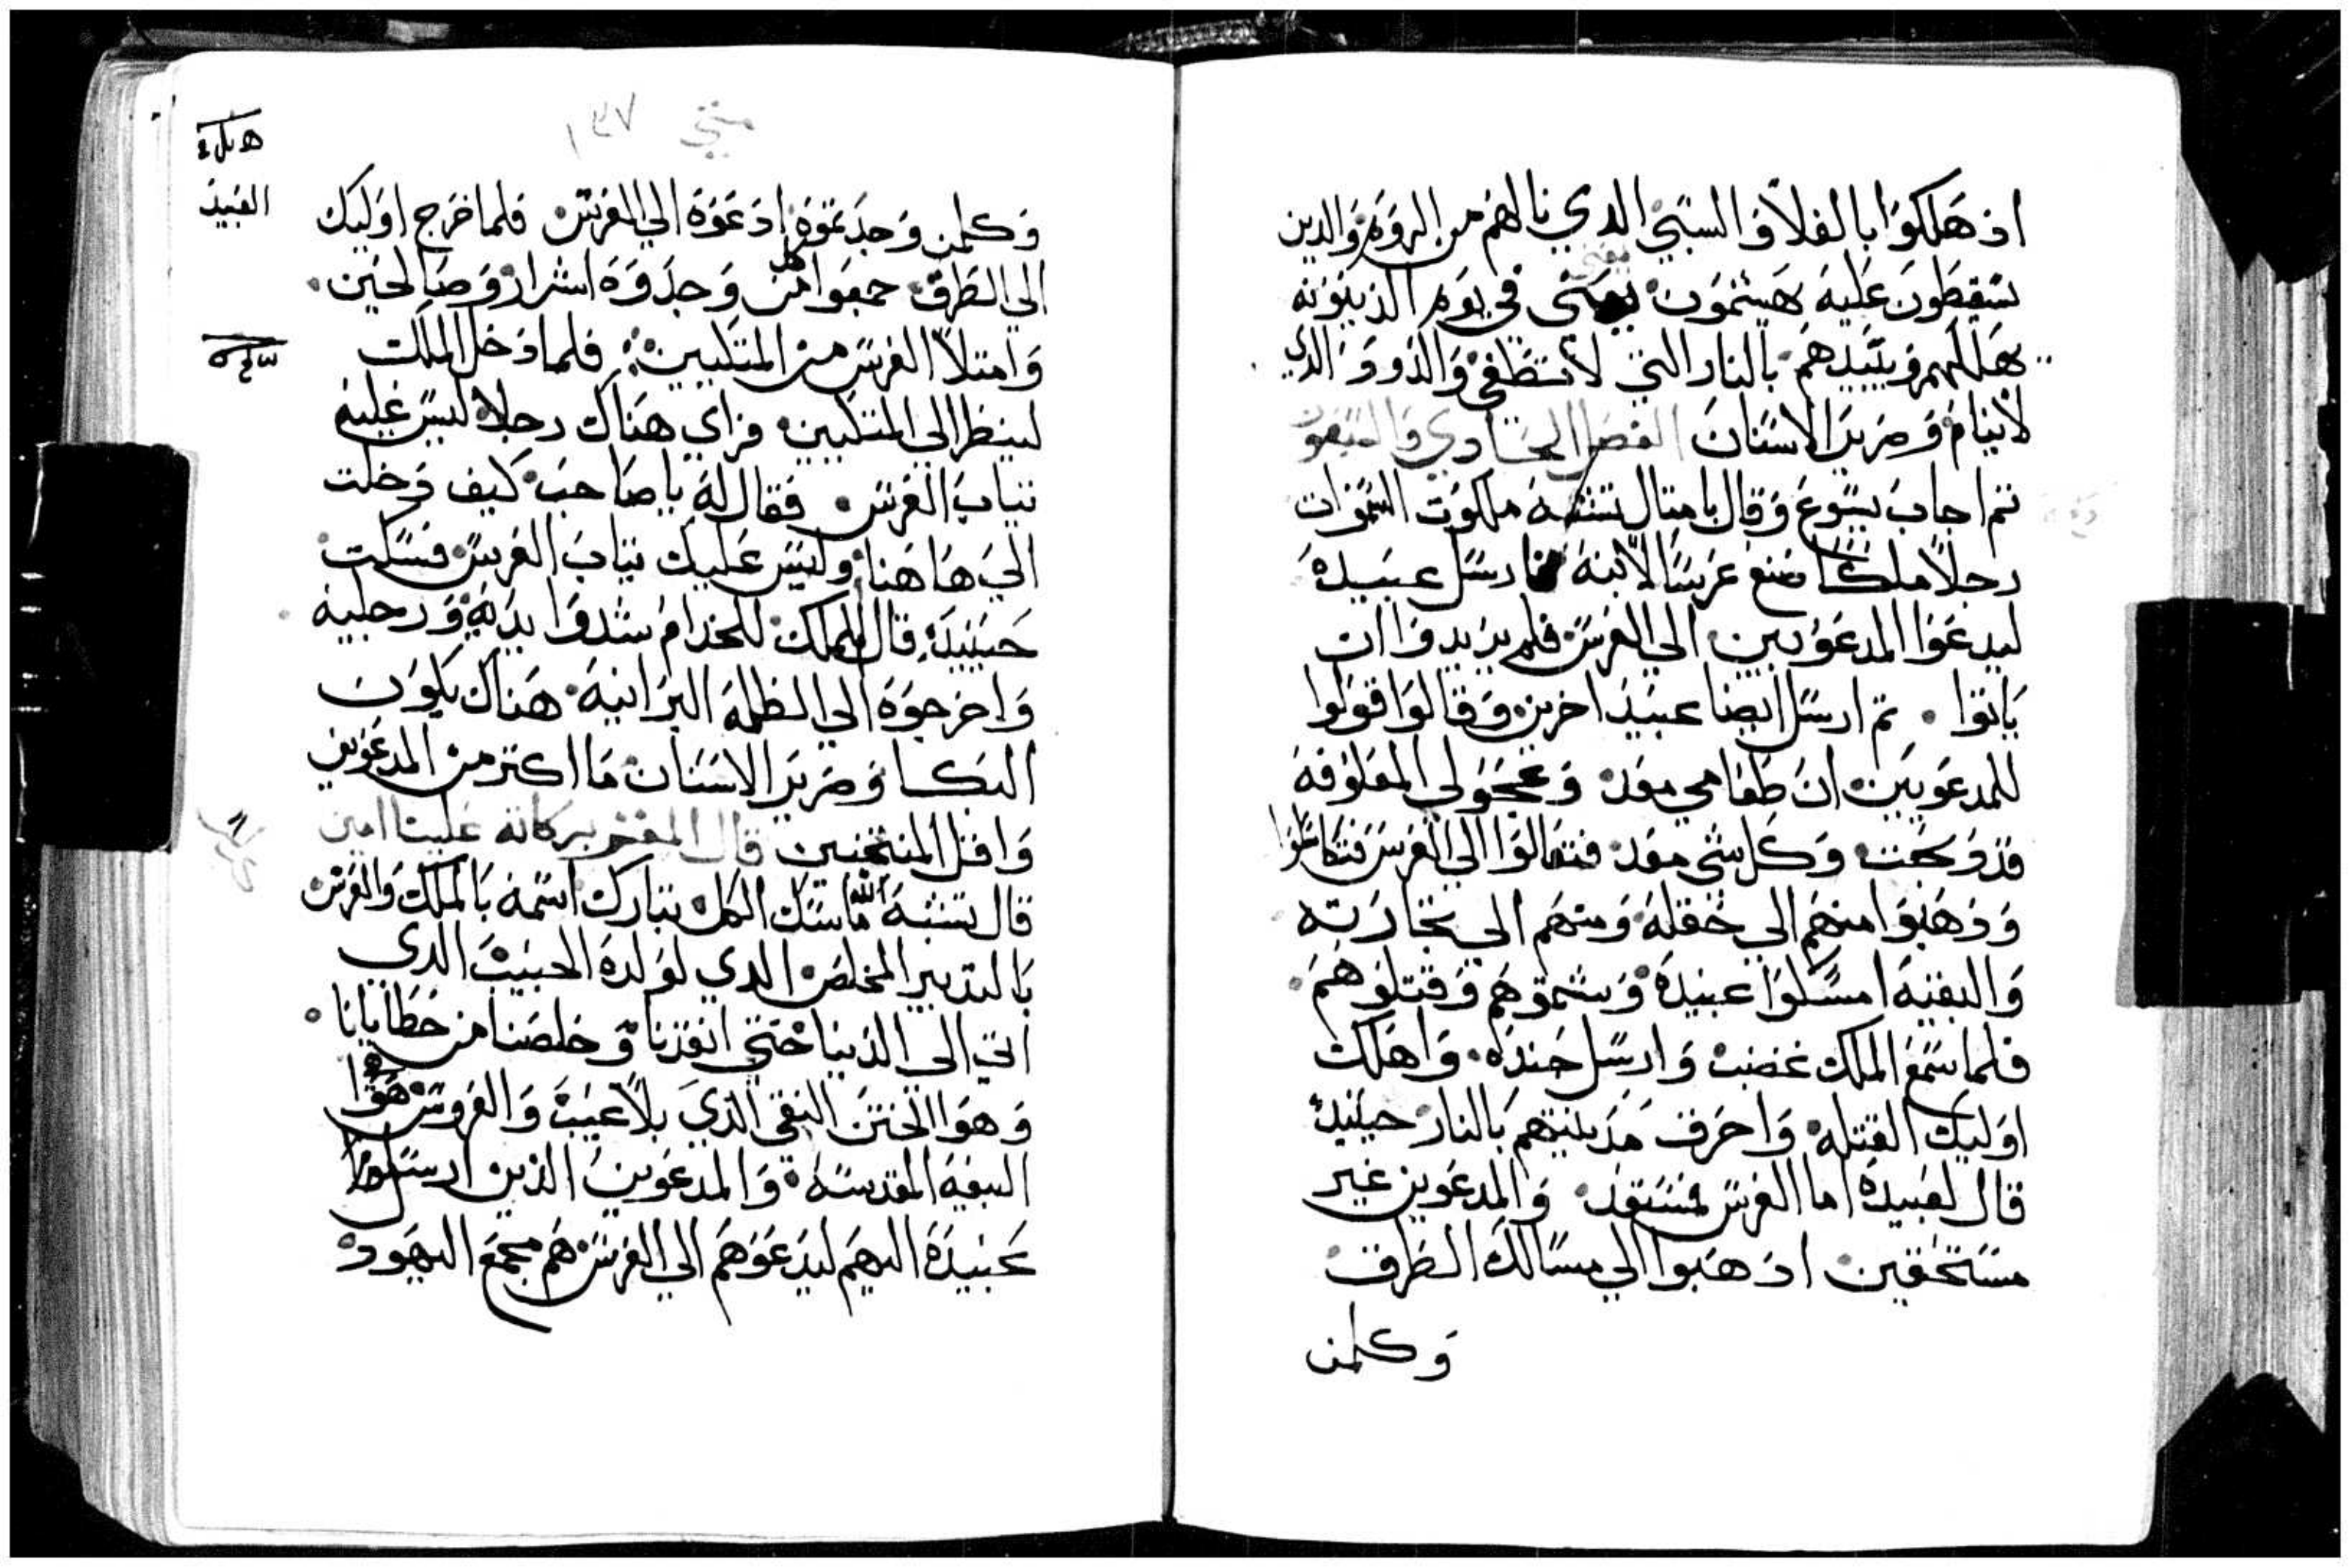 اذ هلكوا بالغلا والسبي الدي نالهم من الروم والدين
يسقطون عليه هيشمون يعني في يوم الدينونه
يهللهم ويبيدهم بالنار التي لا تطفي والدود الدي
لا ينام وصرير الاسنان الفصل الحادي والسبعون
تم اجاب يسوع وقال بامتال تشبه ملكوت السموات
رجلا ملكا صنع عرسا لابنه فارسل عبيده
ليدعوا المدعويين الي العرس فلم يريدوا ان
ياتوا . تم ارسل ايضا عبيد اخرين وقالوا قولوا
للمدعويين ان طعامي معد وعجولي المعلوفه
قد دبحت وكل شي معد فتعالوا الي العرس فتكاسلوا
ودهبوا منهم الي حقله ومنهم الي تجارته
والبقيه امسكوا عبيده وشتموهم وقتلوهم
فلما سمع الملك غضب وارسل جنده . واهلك
اوليك القتله واحرق مدينتهم بالنار حينيد
قال لعبيده اما العرس فمستعد والمدعوين غير
مستحقين ادهبوا الي مسالك الطرق
وكلمن
متي ١٣٧
وكلمن وجدتموه ادعوه الي العرس فلما خرج اوليك
العبيد
الي الطرق جمعوا كل من وجدوه اشرار وصالحين .
وامتلا العرس من المتكيين فلما دخل الملك
لينظر الي المتكيين فراي هناك رجلا ليس عليه
تياب العرس فقال له يا صاحب كيف دخلت
الي هاهنا وليس عليك تياب العرس فسكت
حينيد قال الملك للخدام شدوا يديه ورجليه
واخرجوه الي الظلمه البرانيه هناك يكون
البكا وصرير الاسنان ما اكتر من المدعوين
واقل المنتخبين قال المفسر بركاته علينا امين
قال تشبه الله ماسك الكل تبارك اسمه بالملك والعرس
بالتدبير المخلص الدي لولده الحبيب الدي
اتي الي الدنيا حتي انقدنا وخلصنا من خطايانا
وهو الختن النقي الدي بلا عيب والعروس هو
البيعه المقدسه والمدعوين الذين ارسلوا
عبيده اليهم ليدعوهم الي العرس هم مجمع اليهود